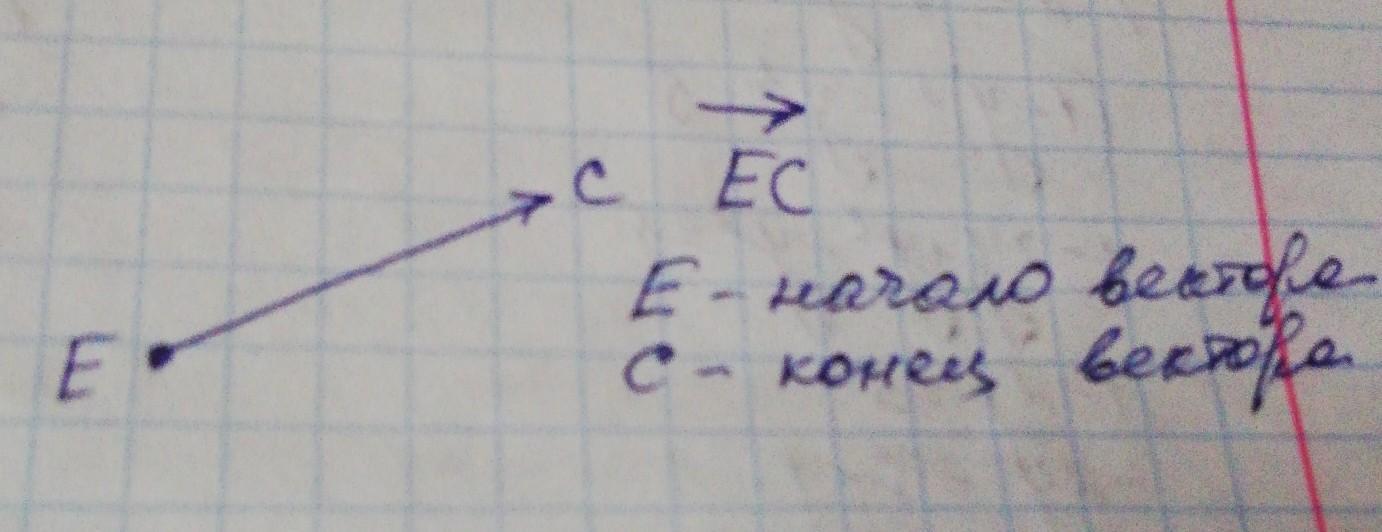 C
EC
E
E - начало вектора
C - конец вектора